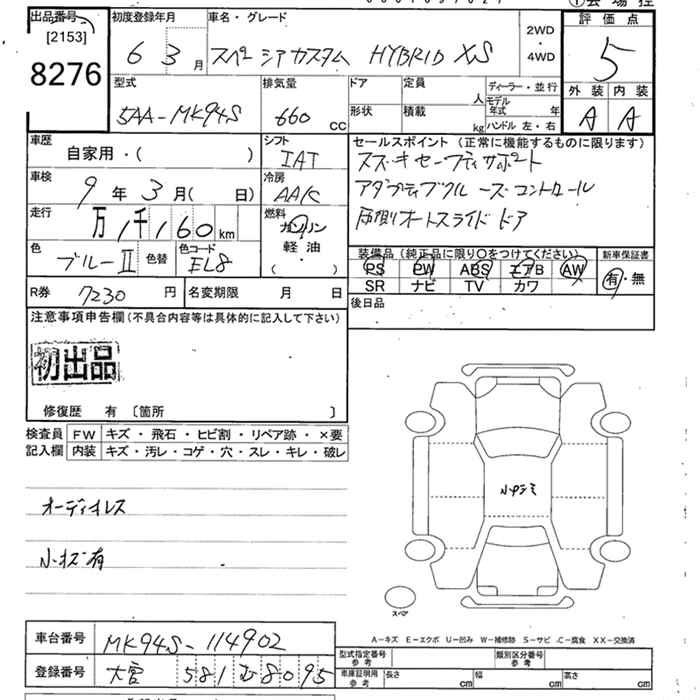 出品番号 初度登録年月 車名・グレード 評価点
[2153] 2WD
8276 6 3月 スペーシアカスタム HYBRID XS ・ 5
4WD
型式 排気量 ドア 定員 ディーラー・並行 外装 内装
5AA-MK94S 660 CC 形状 積載 人 モデル年式 年 A A
kg ハンドル 左・右
車歴 シフト セールスポイント (正常に機能するものに限ります)
自家用・( ) IAT スズキセーフティサポート
車検 冷房 アダプティブクルーズコントロール
9年3月( 日) AAC 両側オートスライドドア
走行 燃料
万1千160km ガソリン
軽・油
( )
色 色替 色コード 装備品 (純正品に限り○をつけてください) 新車保証書
ブルーII EL8 PS PW ABS エアB AW 有・無
SR ナビ TV カワ
R券 7230円 名変期限 月 日 後日品
注意事項申告欄(不具合内容等は具体的に記入して下さい)
初出品
修復歴 有 〔箇所 〕
検査員 FW キズ・飛石・ヒビ割・リペア跡・×要
記入欄 内装 キズ・汚レ・コゲ・穴・スレ・キレ・破レ
オーディオレス
小キズ有
スペア
A-キズ E-エクボ U-凹み W-補修跡 S-サビ C-腐食 XX-交換済
車台番号 MK94S-114902 型式指定番号 参考 類別区分番号 参考
登録番号 581 8095 車庫証明用 参考 長さ cm 幅 cm 高さ cm